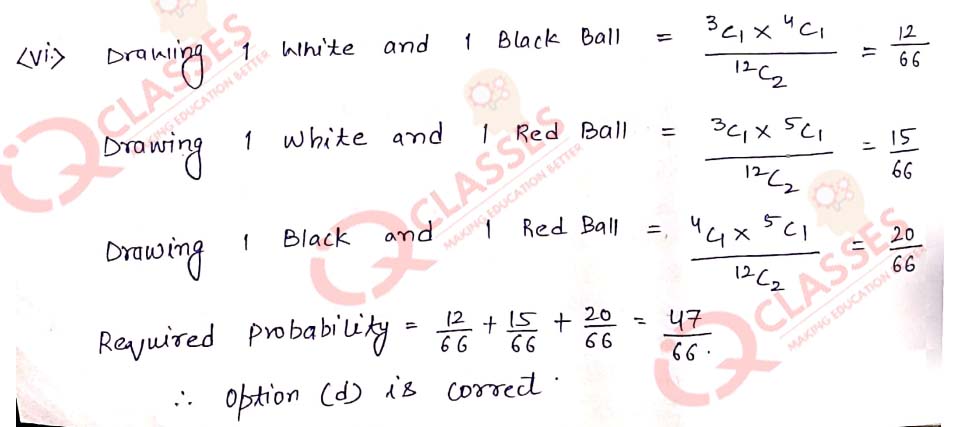 <vi> Drawing 1 White and 1 Black Ball = ³C₁ × ⁴C₁ / ¹²C₂ = 12/66
Drawing 1 White and 1 Red Ball = ³C₁ × ⁵C₁ / ¹²C₂ = 15/66
Drawing 1 Black and 1 Red Ball = ⁴C₁ × ⁵C₁ / ¹²C₂ = 20/66
Required Probability = 12/66 + 15/66 + 20/66 = 47/66.
∴ Option (d) is correct.
CLASSES
MAKING EDUCATION BETTER
CLASSES
MAKING EDUCATION BETTER
CLASSES
MAKING EDUCATION BETTER